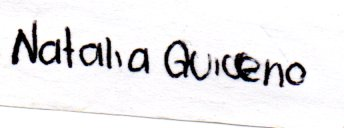 Natalia Quiceno